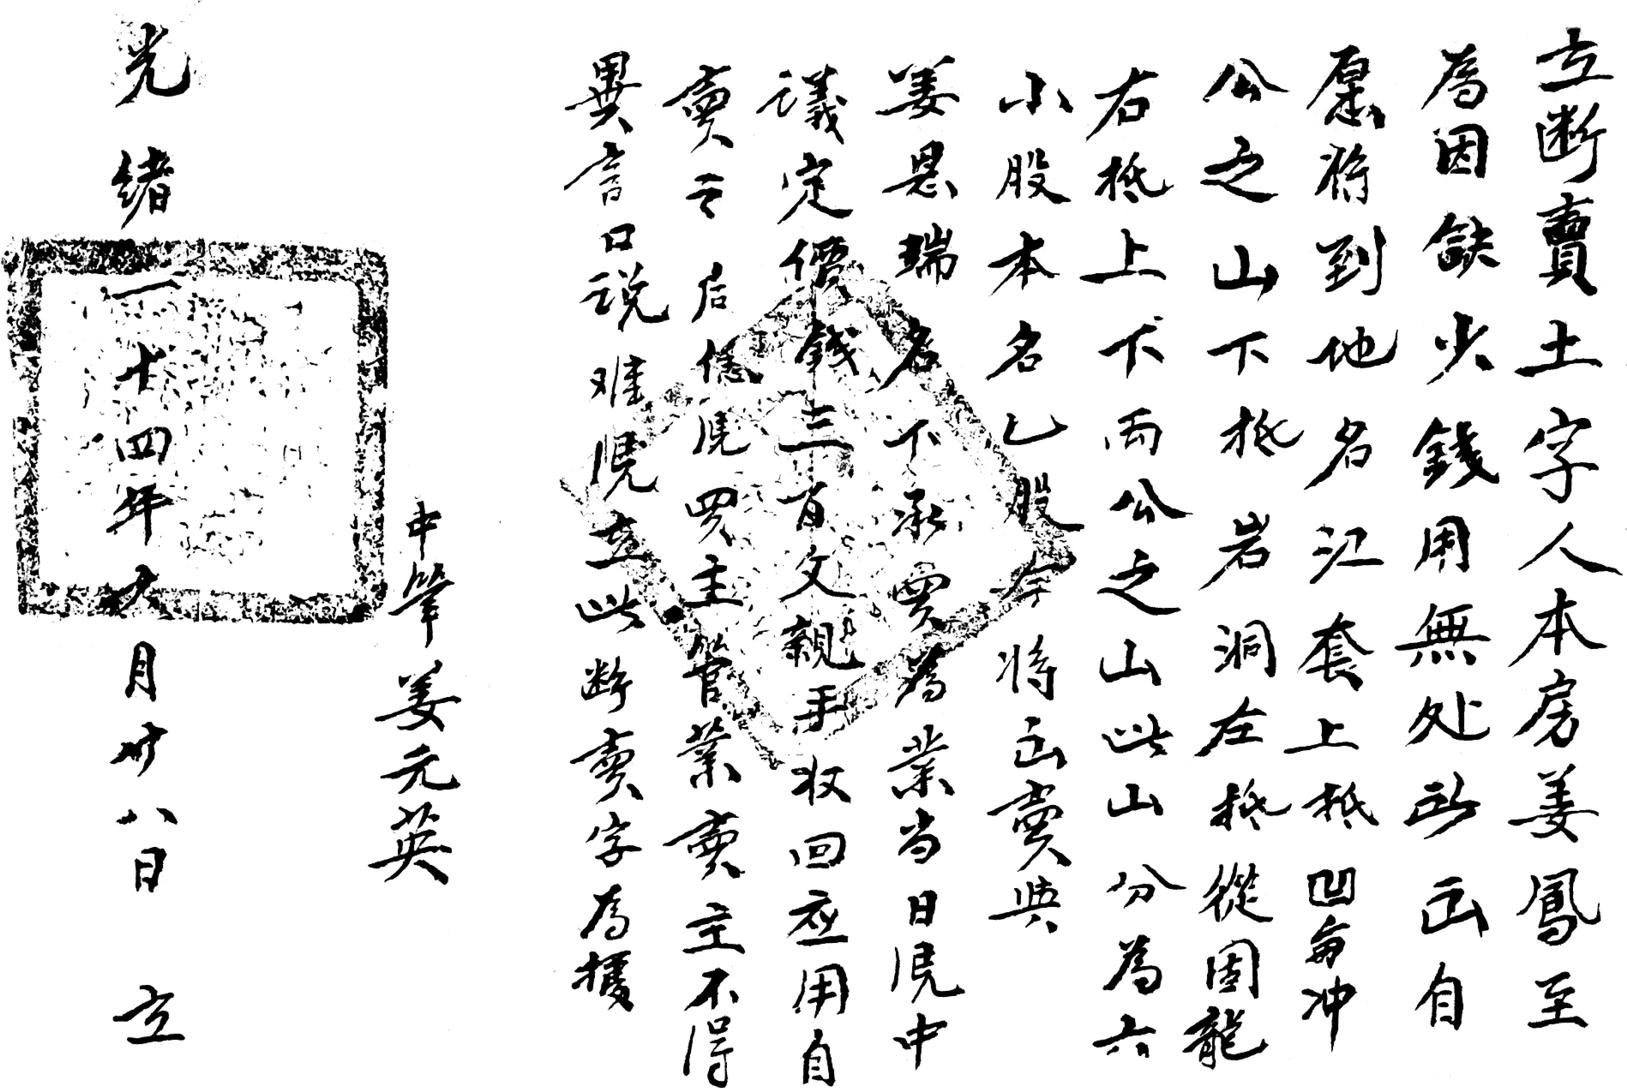 立断賣土字人本房姜鳳至
為因缺少錢用無处所出自
愿将到地名江套上抵凹俞冲
公之山下抵岩洞左抵從固龍
右抵上下両公之山此山分為六
小股本名乙股今将出賣與
姜恩瑞名下承買為業当日凴中
議定價錢三百文親手収回应用自
賣之后任凴買主管業賣主不得
異言口説难凴立此断賣字為據
中筆姜元英
光緒二十四年九月廿八日 立